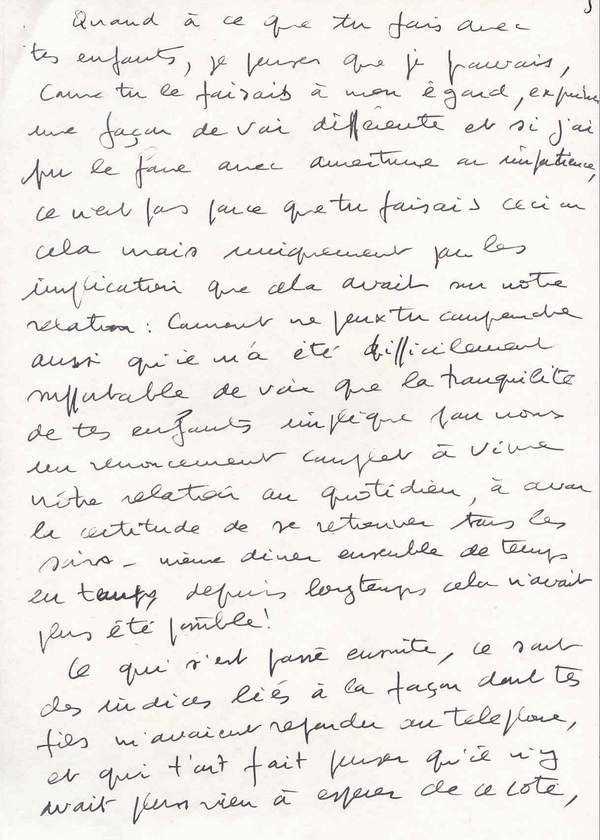 Quand à ce que tu fais avec
tes enfants, je penser que je pouvais,
comme tu le faisais à mon égard, exprimer
une façon de voir différente et si j'ai
pu le faire avec amertume ou impatience,
ce n'est pas parce que tu faisais ceci ou
cela mais uniquement pour les
implication que cela avait sur notre
relation : Comment ne peux tu comprendre
aussi qu'il m'a été difficilement
supportable de voir que la tranquilité
de tes enfants implique pour nous
un renoncement complet à vivre
nôtre relation au quotidien, à avoir
la certitude de se retrouver tous les
soirs - même diner ensemble de temps
en temps depuis longtemps cela n'avait
plus été possible !
Ce qui s'est passé ensuite, ce sont
des indices liés à la façon dont tes
fils m'avaient repondu au telephone,
et qui t'ont fait penser qu'il n'y
avait plus rien à esperer de ce coté,